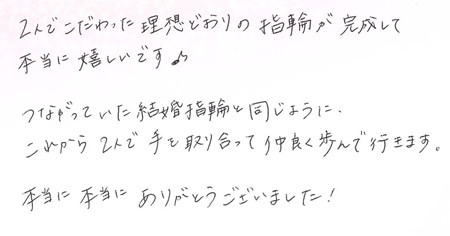 2人でこだわった理想どおりの指輪が完成して
本当に嬉しいです♪
つながっていた結婚指輪と同じように、
これから2人で手を取り合って仲良く歩んで行きます。
本当に本当にありがとうございました!